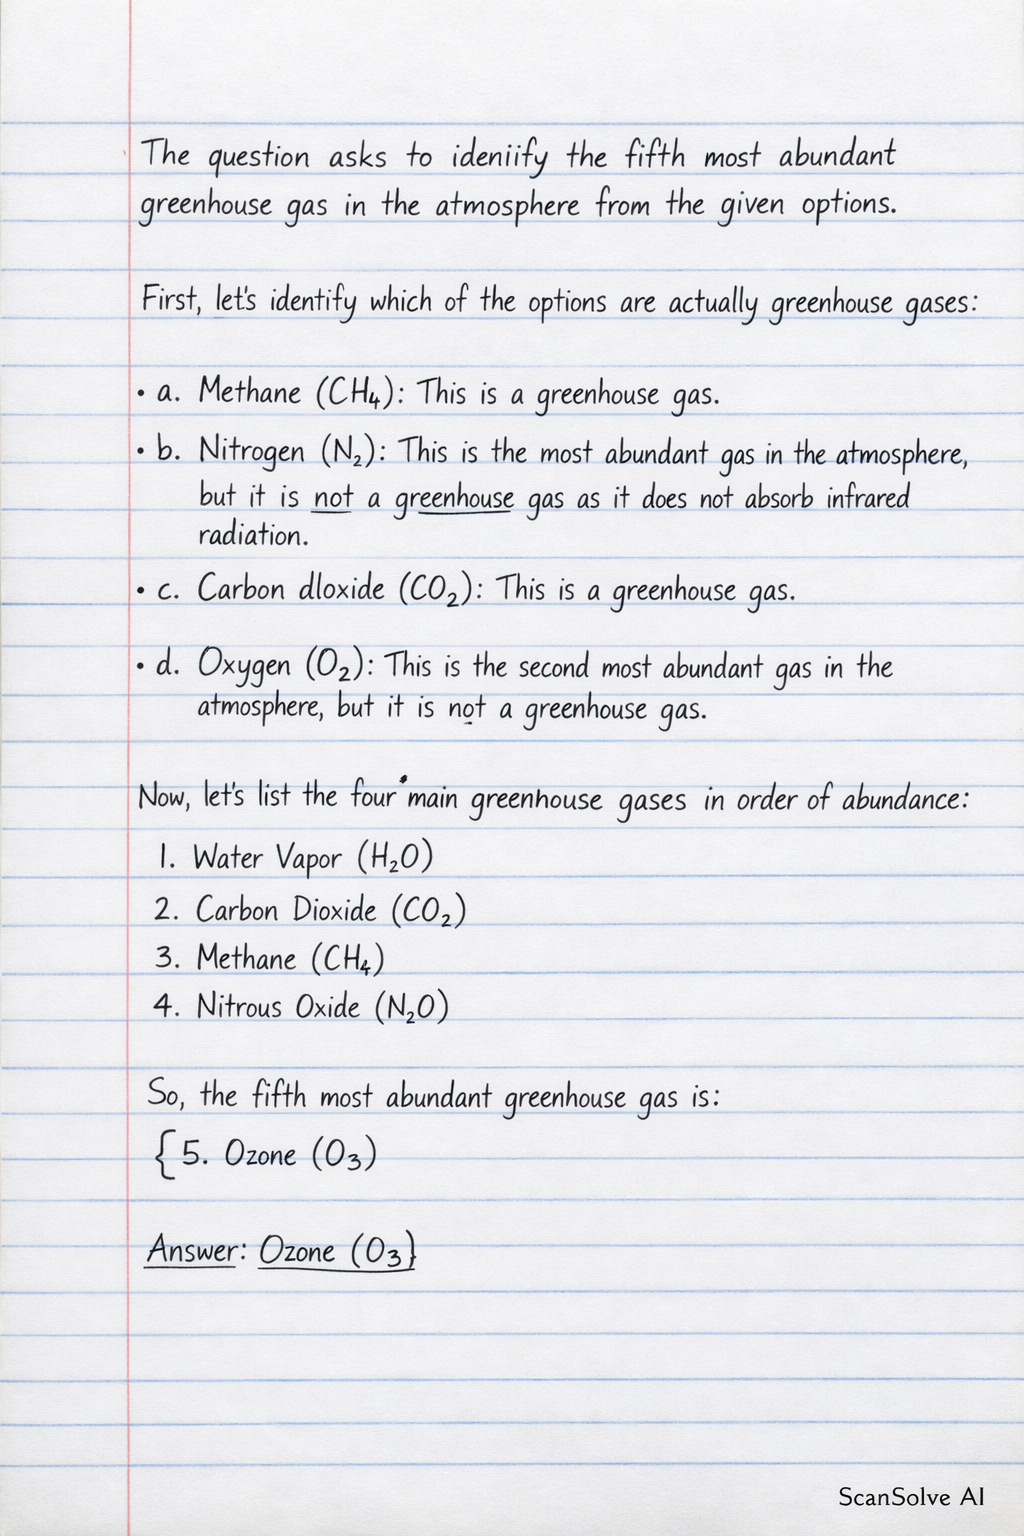 The question asks to ideniify the fifth most abundant
greenhouse gas in the atmosphere from the given options.
First, let's identify which of the options are actually greenhouse gases:
• a. Methane (CH₄): This is a greenhouse gas.
• b. Nitrogen (N₂): This is the most abundant gas in the atmosphere,
but it is not a greenhouse gas as it does not absorb infrared
radiation.
• c. Carbon dloxide (CO₂): This is a greenhouse gas.
• d. Oxygen (O₂): This is the second most abundant gas in the
atmosphere, but it is not a greenhouse gas.
Now, let's list the four main greenhouse gases in order of abundance:
1. Water Vapor (H₂O)
2. Carbon Dioxide (CO₂)
3. Methane (CH₄)
4. Nitrous Oxide (N₂O)
So, the fifth most abundant greenhouse gas is:
{5. Ozone (O₃)
Answer: Ozone (O₃}
ScanSolve AI